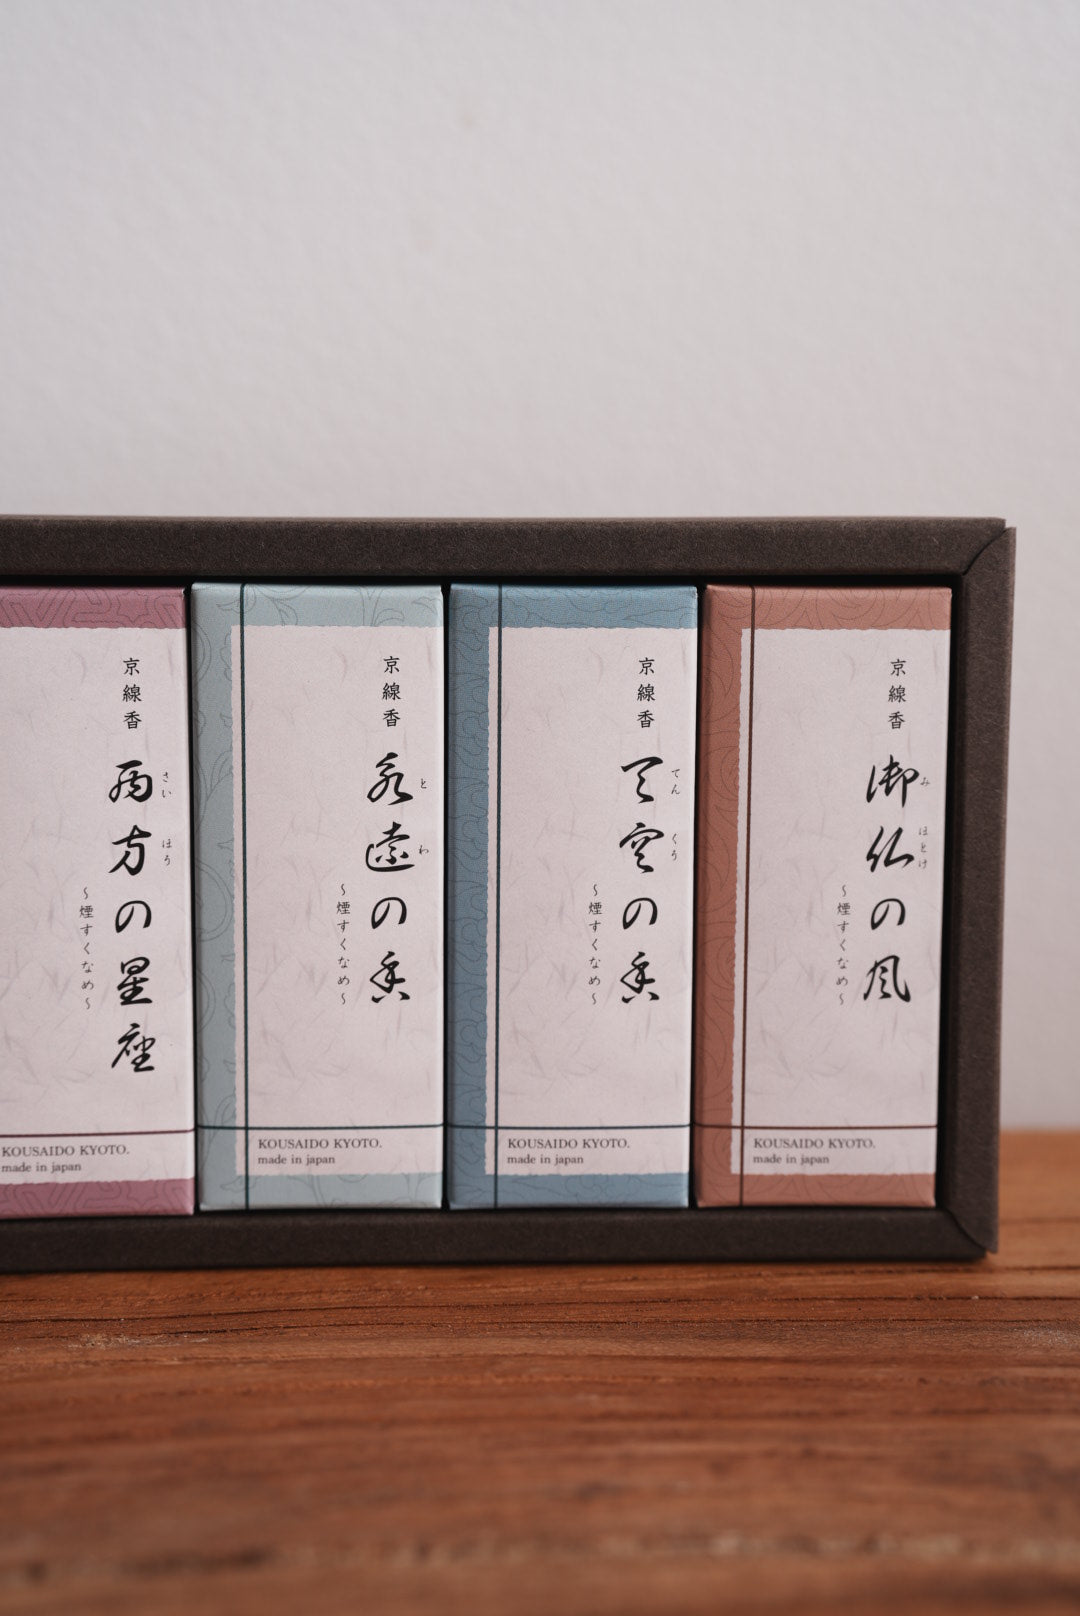 京線香
西方の星座
さいほう
～煙すくなめ～
KOUSAIDO KYOTO.
made in japan
京線香
永遠の香
とわ
～煙すくなめ～
KOUSAIDO KYOTO.
made in japan
京線香
天空の香
てんくう
～煙すくなめ～
KOUSAIDO KYOTO.
made in japan
京線香
御仏の風
みほとけ
～煙すくなめ～
KOUSAIDO KYOTO.
made in japan